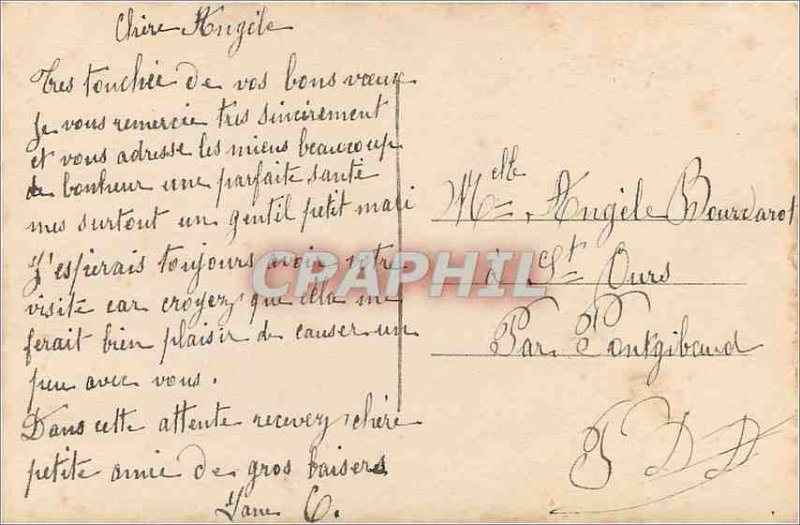 Chère Angèle
Très touchée de vos bons voeux
je vous remercie très sincèrement
et vous adresse les miens beaucoup
de bonheur une parfaite santé
mes surtout un gentil petit mari
J'espérais toujours avoir votre
visite car croyez que cella me
ferait bien plaisir de causer un
peu avec vous.
Dans cette attente recevez chère
petite amie de gros baisers
C.
Melle Angèle Bourdarot
à St Ours
Par Pontgibaud
P D D
CPARPHIL